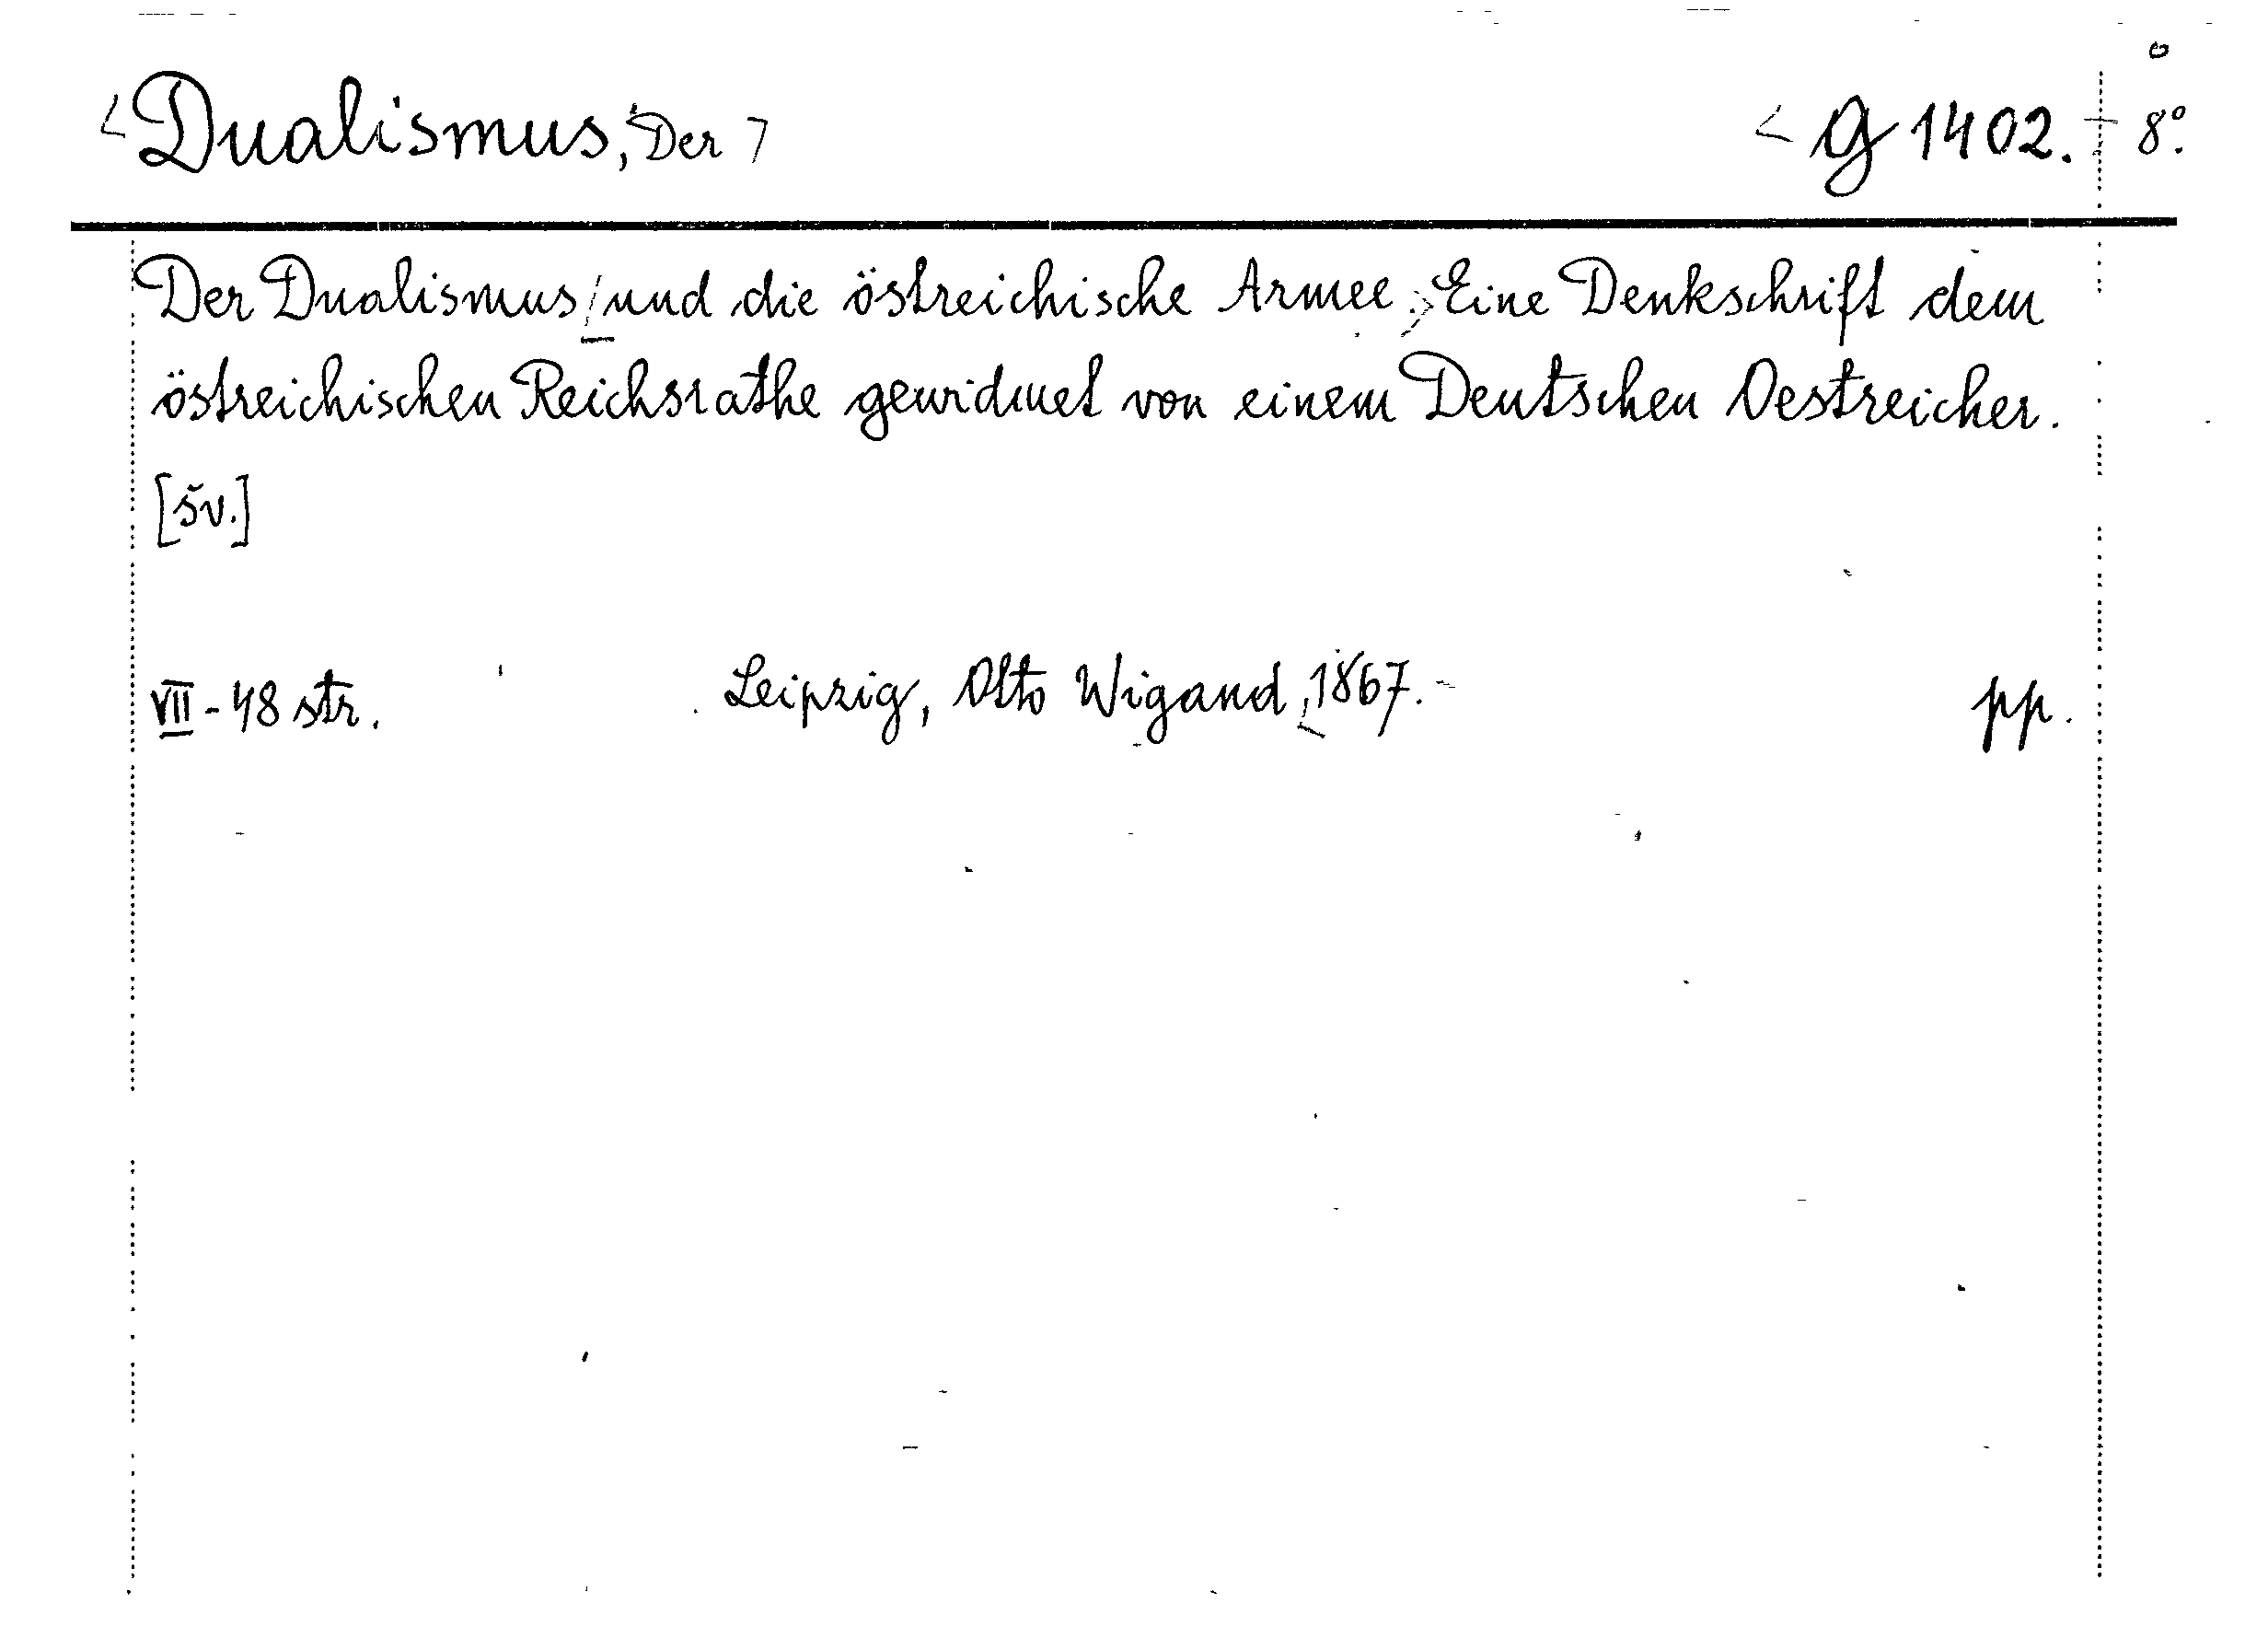 Dualismus, Der
g 1402. 8°.
Der Dualismus und die östreichische Armee. Eine Denkschrift dem
östreichischen Reichsrathe gewidmet von einem Deutschen Oestreicher.
[šv.]
VII - 48 str. Leipzig, Otto Wigand, 1867. pp.